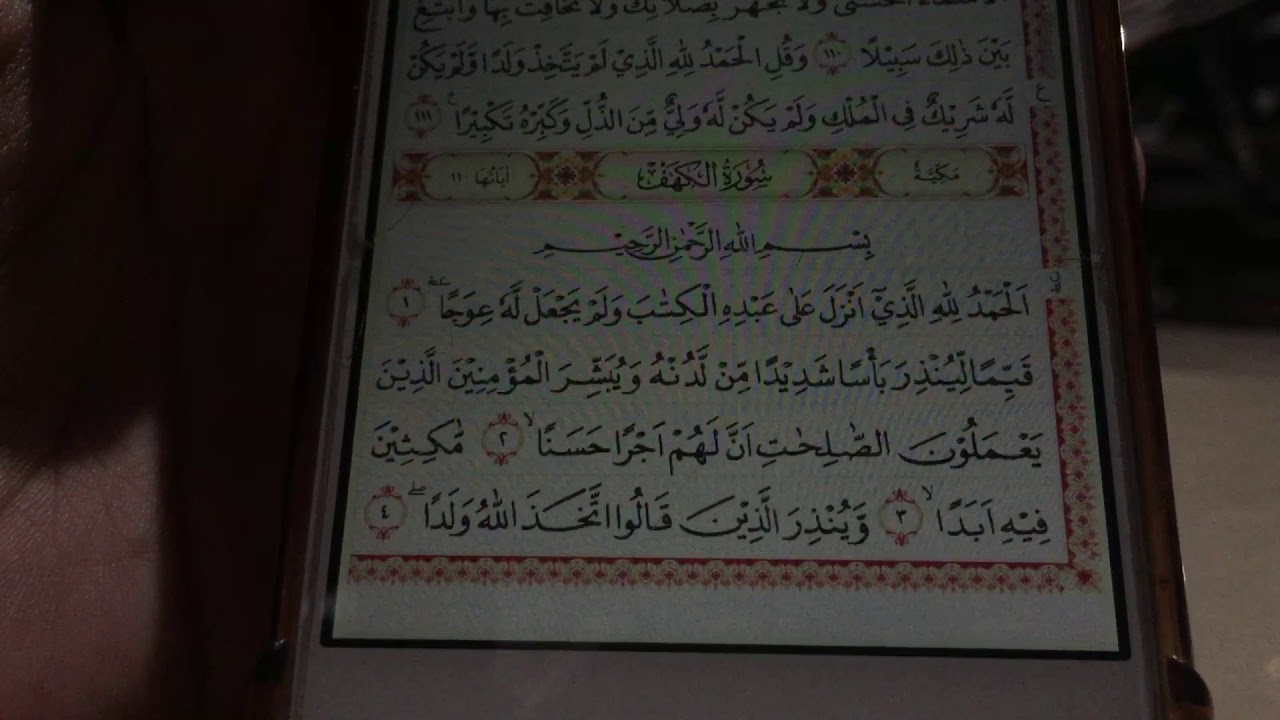 الْاَسْمَاۤءُ الْحُسْنٰى وَلَا تَجْهَرْ بِصَلَاتِكَ وَلَا تُخَافِتْ بِهَا وَابْتَغِ
بَيْنَ ذٰلِكَ سَبِيْلًا ١١٠ وَقُلِ الْحَمْدُ لِلّٰهِ الَّذِيْ لَمْ يَتَّخِذْ وَلَدًا وَّلَمْ يَكُنْ
لَّهٗ شَرِيْكٌ فِى الْمُلْكِ وَلَمْ يَكُنْ لَّهٗ وَلِيٌّ مِّنَ الذُّلِّ وَكَبِّرْهُ تَكْبِيْرًا ࣖ ١١١
مَكِّيَّةٌ سُوْرَةُ الْكَهْفِ اٰيَاتُهَا ١١٠
بِسْمِ اللّٰهِ الرَّحْمٰنِ الرَّحِيْمِ
اَلْحَمْدُ لِلّٰهِ الَّذِيْٓ اَنْزَلَ عَلٰى عَبْدِهِ الْكِتٰبَ وَلَمْ يَجْعَلْ لَّهٗ عِوَجًا ١
قَيِّمًا لِّيُنْذِرَ بَأْسًا شَدِيْدًا مِّنْ لَّدُنْهُ وَيُبَشِّرَ الْمُؤْمِنِيْنَ الَّذِيْنَ
يَعْمَلُوْنَ الصّٰلِحٰتِ اَنَّ لَهُمْ اَجْرًا حَسَنًاۙ ٢ مَّاكِثِيْنَ
فِيْهِ اَبَدًاۙ ٣ وَّيُنْذِرَ الَّذِيْنَ قَالُوا اتَّخَذَ اللّٰهُ وَلَدًاۖ ٤